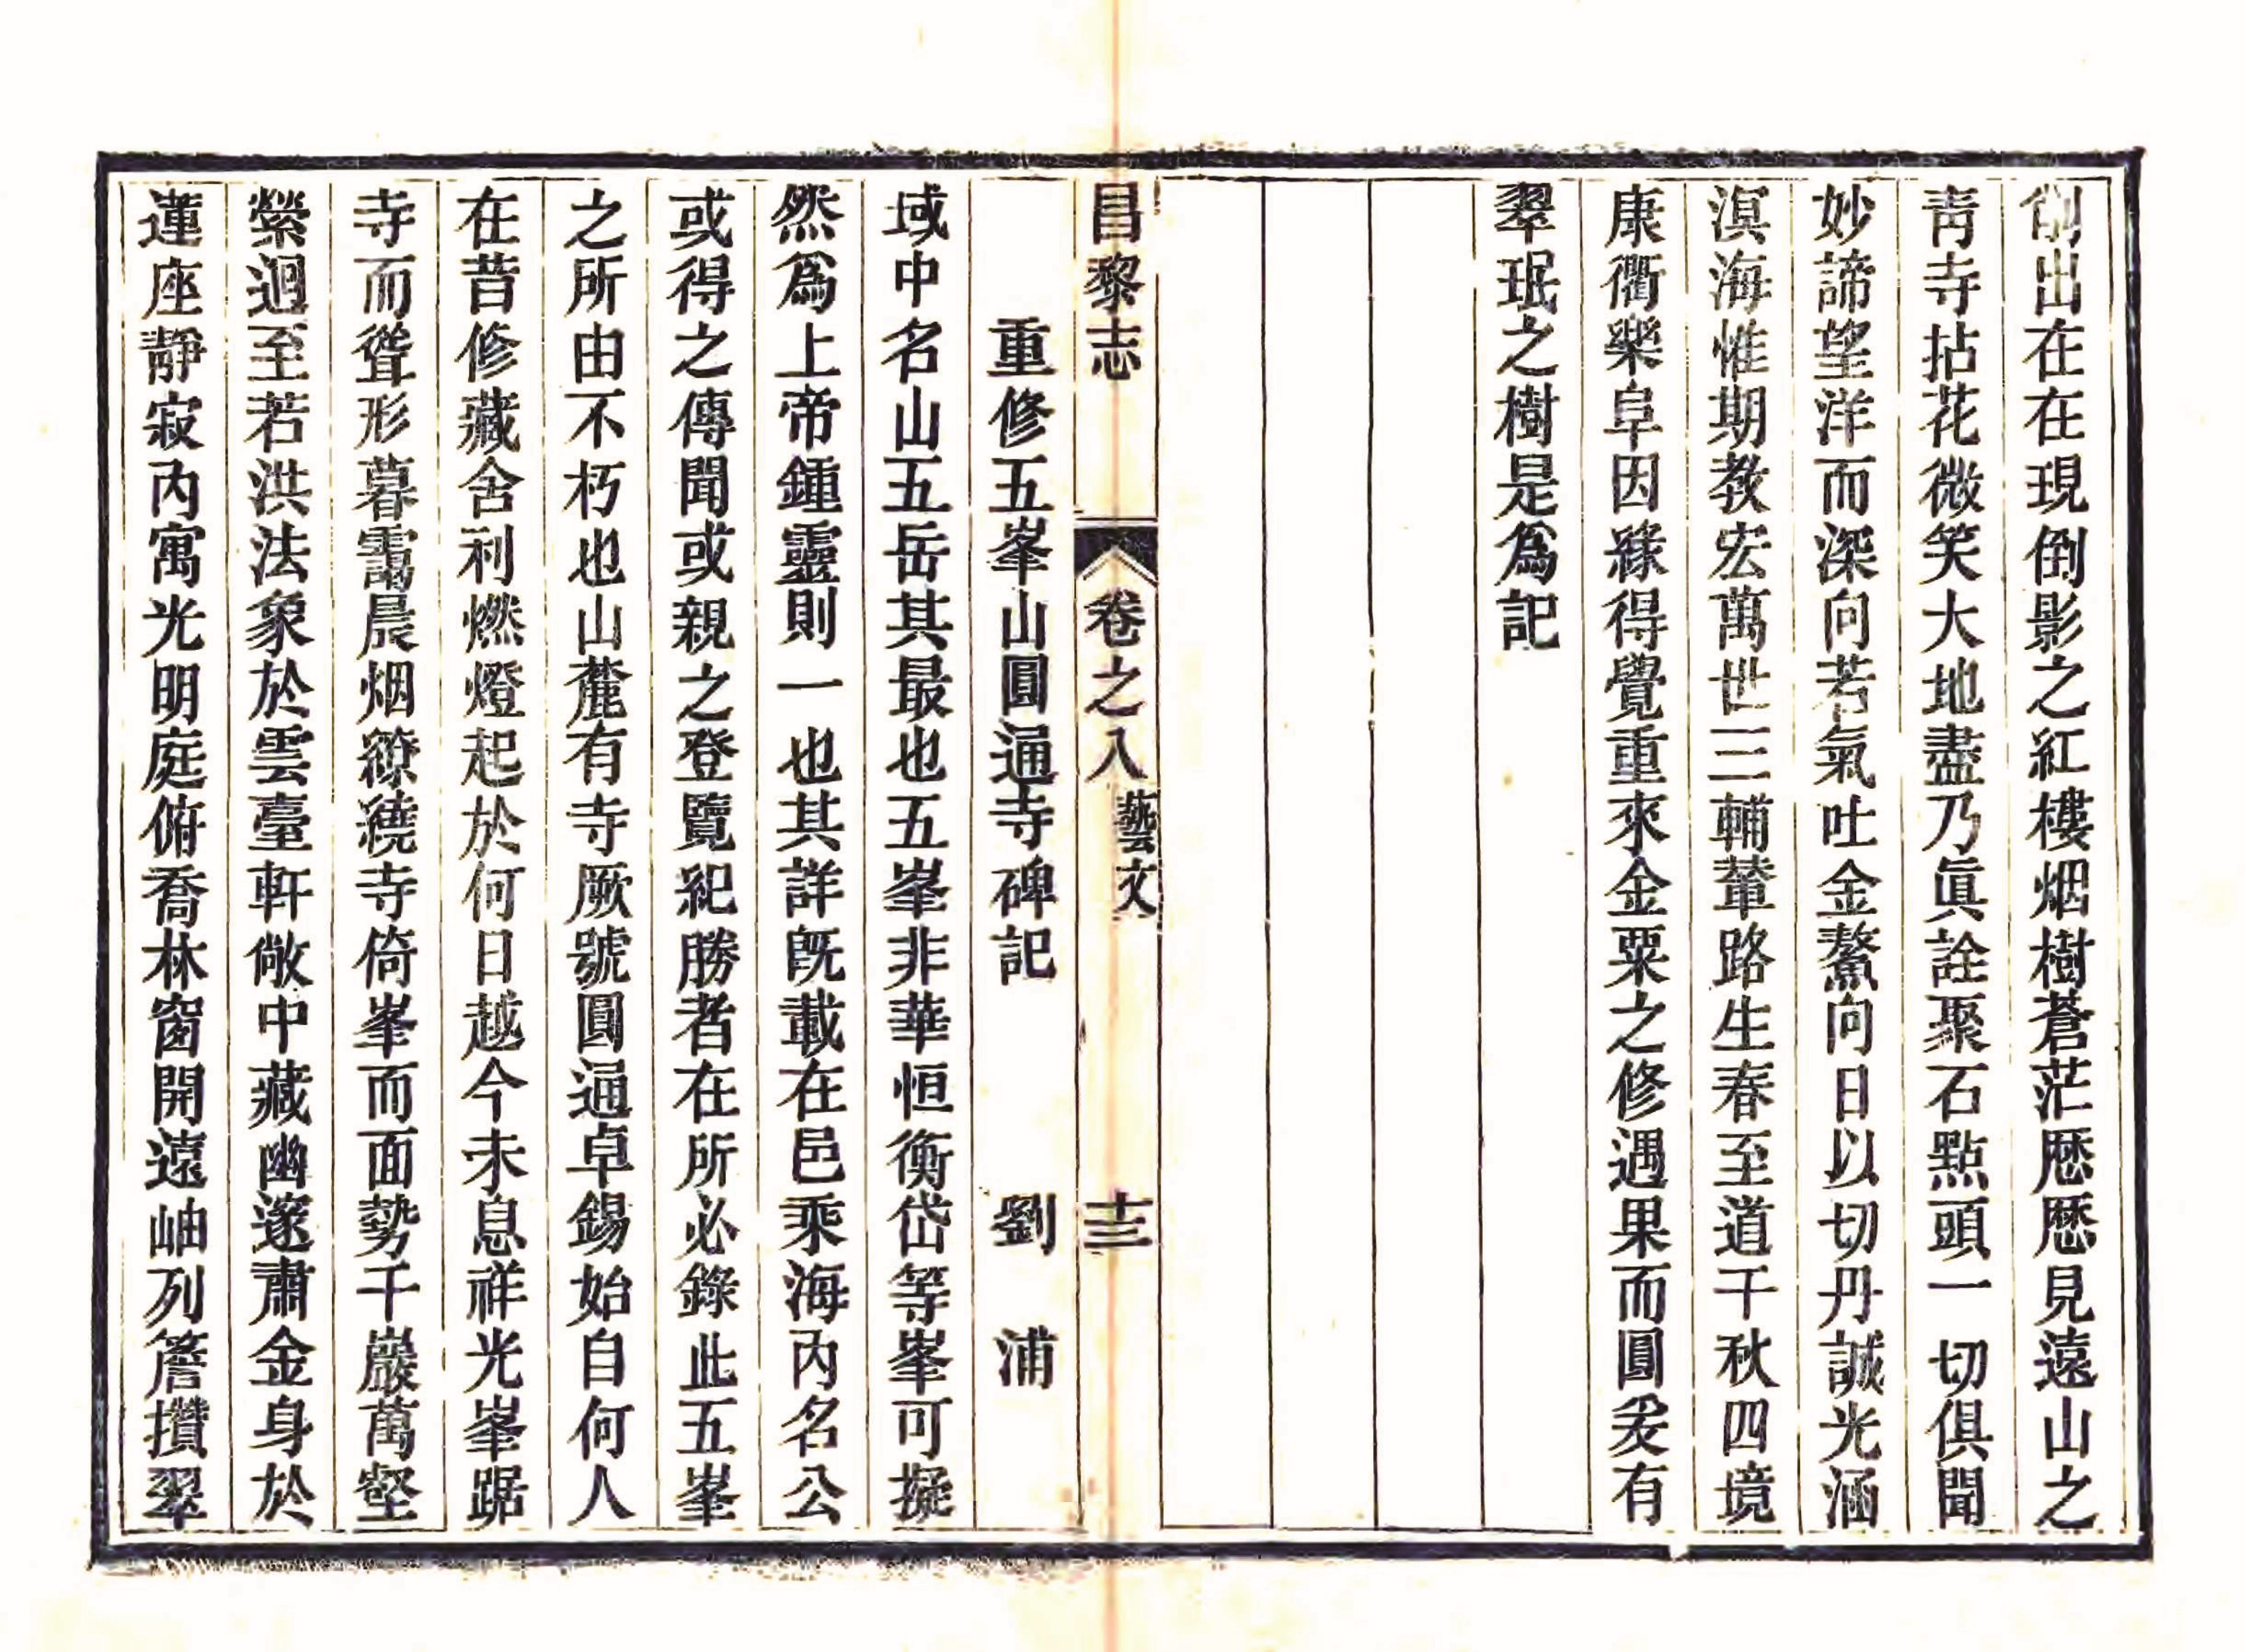 削出在在現倒影之紅樓烟樹蒼茫歷歷見遠山之
靑寺拈花微笑大地盡乃眞詮聚石㸃頭一切俱聞
妙諦望洋而深向若氣吐金鰲向日以切丹誠光涵
溟海惟期敎宏萬世三輔輦路生春至道千秋四境
康衢樂阜因緣得覺重來金粟之修遇果而圓爰有
翠珉之樹是爲記
昌黎志
卷之八
藝文
十三
重修五峯山圓通寺碑記 劉 浦
域中名山五岳其最也五峯非華恒衡岱等峯可擬
然爲上帝鍾靈則一也其詳旣載在邑乘海內名公
或得之傳聞或親之登覽紀勝者在所必錄此五峯
之所由不朽也山麓有寺厥號圓通卓錫始自何人
在昔修藏舍利燃燈起於何日越今未息祥光峯踞
寺而聳形暮靄晨烟繚繞寺倚峯而面勢千巖萬壑
縈迴至若洪法象於雲臺軒敞中藏幽邃肅金身於
蓮座靜寂內寓光明庭俯喬林窗開遠岫列簷攢翠